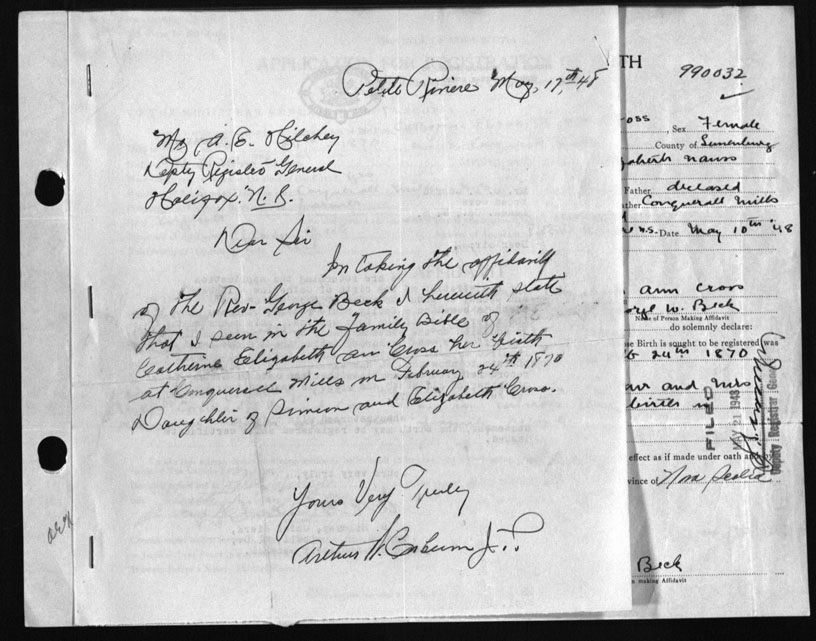 Petite Riviere May, 17th, 48
Mr A. E. Hilchey
Depty Registro General
Halifax, N.S.
Dear Sir
In taking the affidavit
of the Rev. George Beck I herewith state
that I seen in the Family Bible of
Catherine Elizabeth Ann Cross her birth
at Conquerall Mills on February 24th 1870
Daughter of Simeon and Elizabeth Cross.
Yours Very Truly
Arthur W. J.P.
TH
990032
oss, Sex Female
County of Lunenburg
Father deceased
ather Conquerall Mills
N.S. Date May 10th '48
ann cross
orge W. Beck
Name of Person Making Affidavit
do solemnly declare:
se Birth is sought to be registered was
24th 1870
and Mrs
births
FILED
MAY 21 1948
Deputy Registrar General
effect as if made under oath an
vince of Nova Scotia
Beck
n making Affidavit